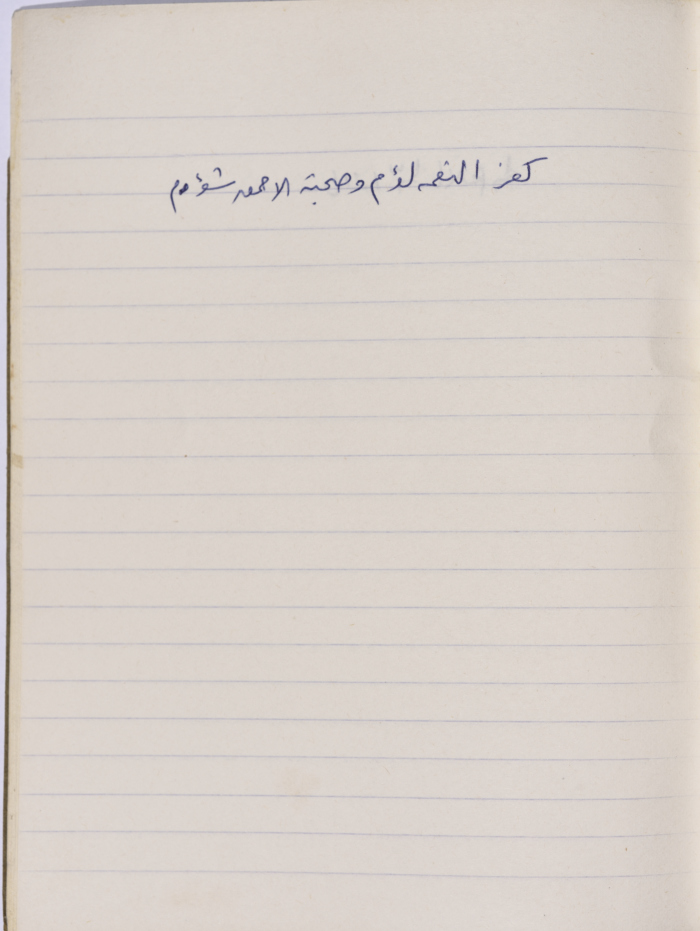 كفر النعمه لؤم وصحبة الاحمق شؤم